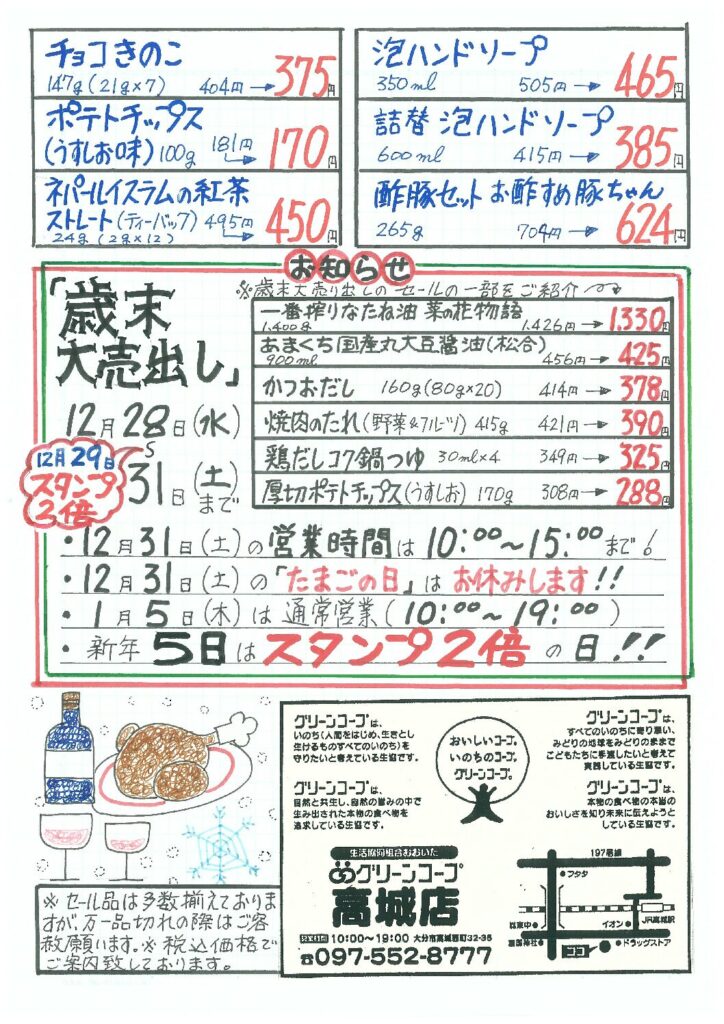 チョコきのこ
147g(21g×7) 404円→375円
ポテトチップス
(うすしお味)100g 181円→170円
ネパールイスラムの紅茶
ストレート(ティーバッグ) 495円→450円
24g(2g×12)
泡ハンドソープ
350ml 505円→465円
詰替 泡ハンドソープ
600ml 415円→385円
酢豚セット お酢すめ豚ちゃん
265g 704円→624円
お知らせ
「歳末
大売出し」
12月28日(水)
12月29日
スタンプ
2倍
31日(土)
まで
※歳末大売り出しのセールの一部をご紹介
一番搾りなたね油 菜の花物語
1,400g 1,426円→1,330円
あまくち国産丸大豆醤油(松合)
900ml 456円→425円
かつおだし 160g(80g×20) 414円→378円
焼肉のたれ(野菜&フルーツ) 415g 421円→390円
鶏だしコク鍋つゆ 30ml×4 349円→325円
厚切ポテトチップス(うすしお) 170g 308円→288円
・12月31日(土)の営業時間は10:00~15:00まで!
・12月31日(土)の「たまごの日」はお休みします!!
・1月5日(木)は通常営業(10:00~19:00)
・新年5日はスタンプ2倍の日!!
※セール品は多数揃えておりま
すが、万一品切れの際はご容
赦願います。※税込価格で
ご案内致しております。
グリーンコープは、
いのち(人間をはじめ、生きとし
生けるものすべてのいのち)を
守りたいと考えている生協です。
グリーンコープは、
自然と共生し、自然の旨みの中で
生み出された本物の食べ物を
追求している生協です。
おいしいコープ。
いのちのコープ。
グリーンコープ。
グリーンコープは、
すべてのいのちに寄り添い、
みどりの地球をみどりのままで
こどもたちに手渡したいと考えて
実践している生協です。
グリーンコープは、
本物の食べ物の本当の
おいしさを知り未来に伝えようと
している生協です。
生活協同組合おおいた
グリーンコープ
高城店
営業時間 10:00~19:00 大分市高城西町32-35
☎097-552-8777
197号線
フタタ
イオン
JR高城駅
護国神社
ドラッグストア
ココ